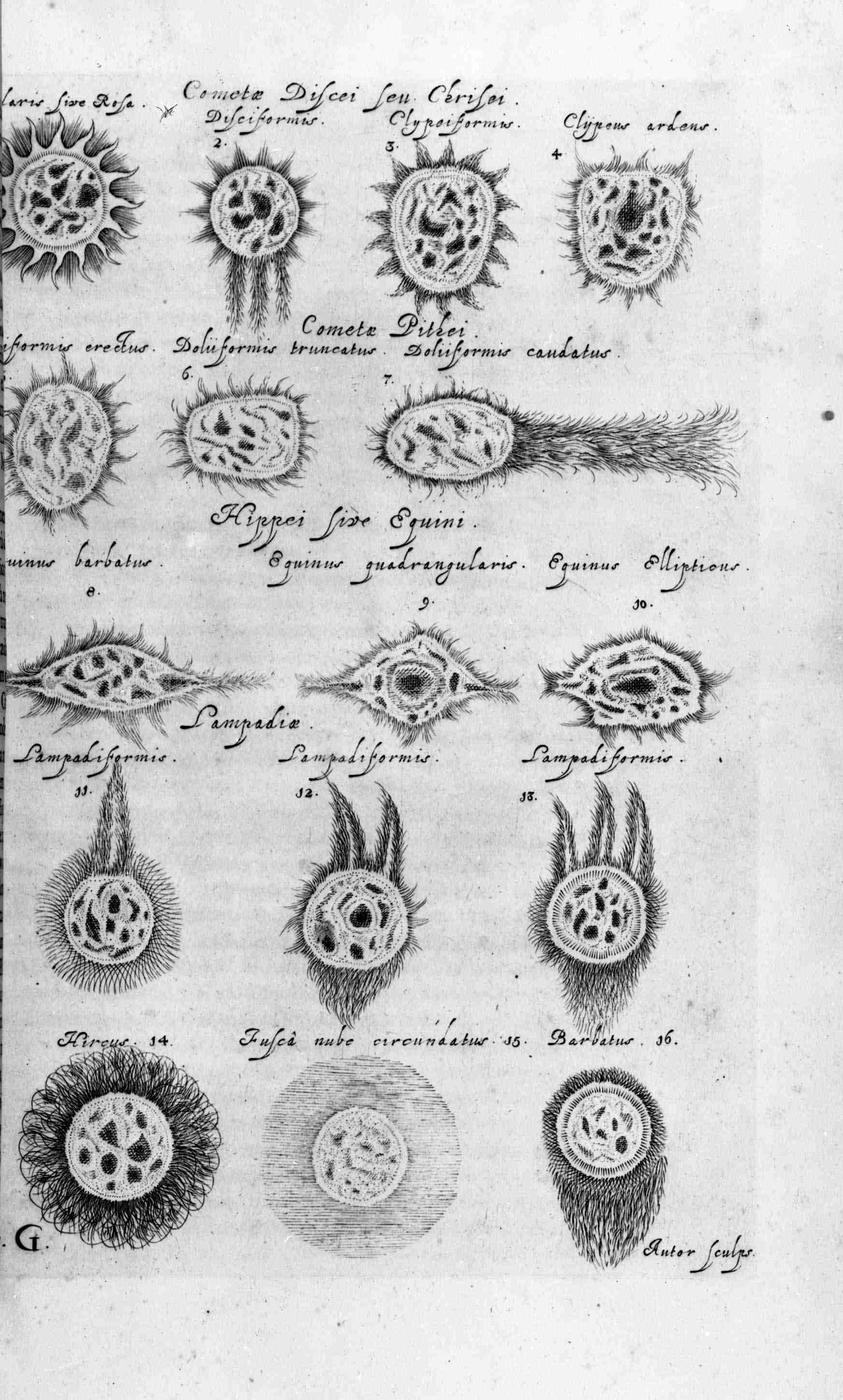 laris ſive Roſa.
Cometæ Diſcei ſeu Chriſei.
Diſciformis. Clypeiformis. Clÿpeus ardens.
2. 3. 4
Cometæ Pithei.
iformis erectus. Doliiformis truncatus. Doliiformis caudatus.
6. 7.
Hippei ſive Equini.
uinus barbatus. Equinus quadrangularis. Equinus Ellipticus.
8. 9. 10.
Lampadiæ.
Lampadiformis. Lampadiformis. Lampadiformis.
11. 12. 13.
Hircus. 14. Fuſcâ nube circundatus. 15. Barbatus. 16.
. G.
Autor ſculps.